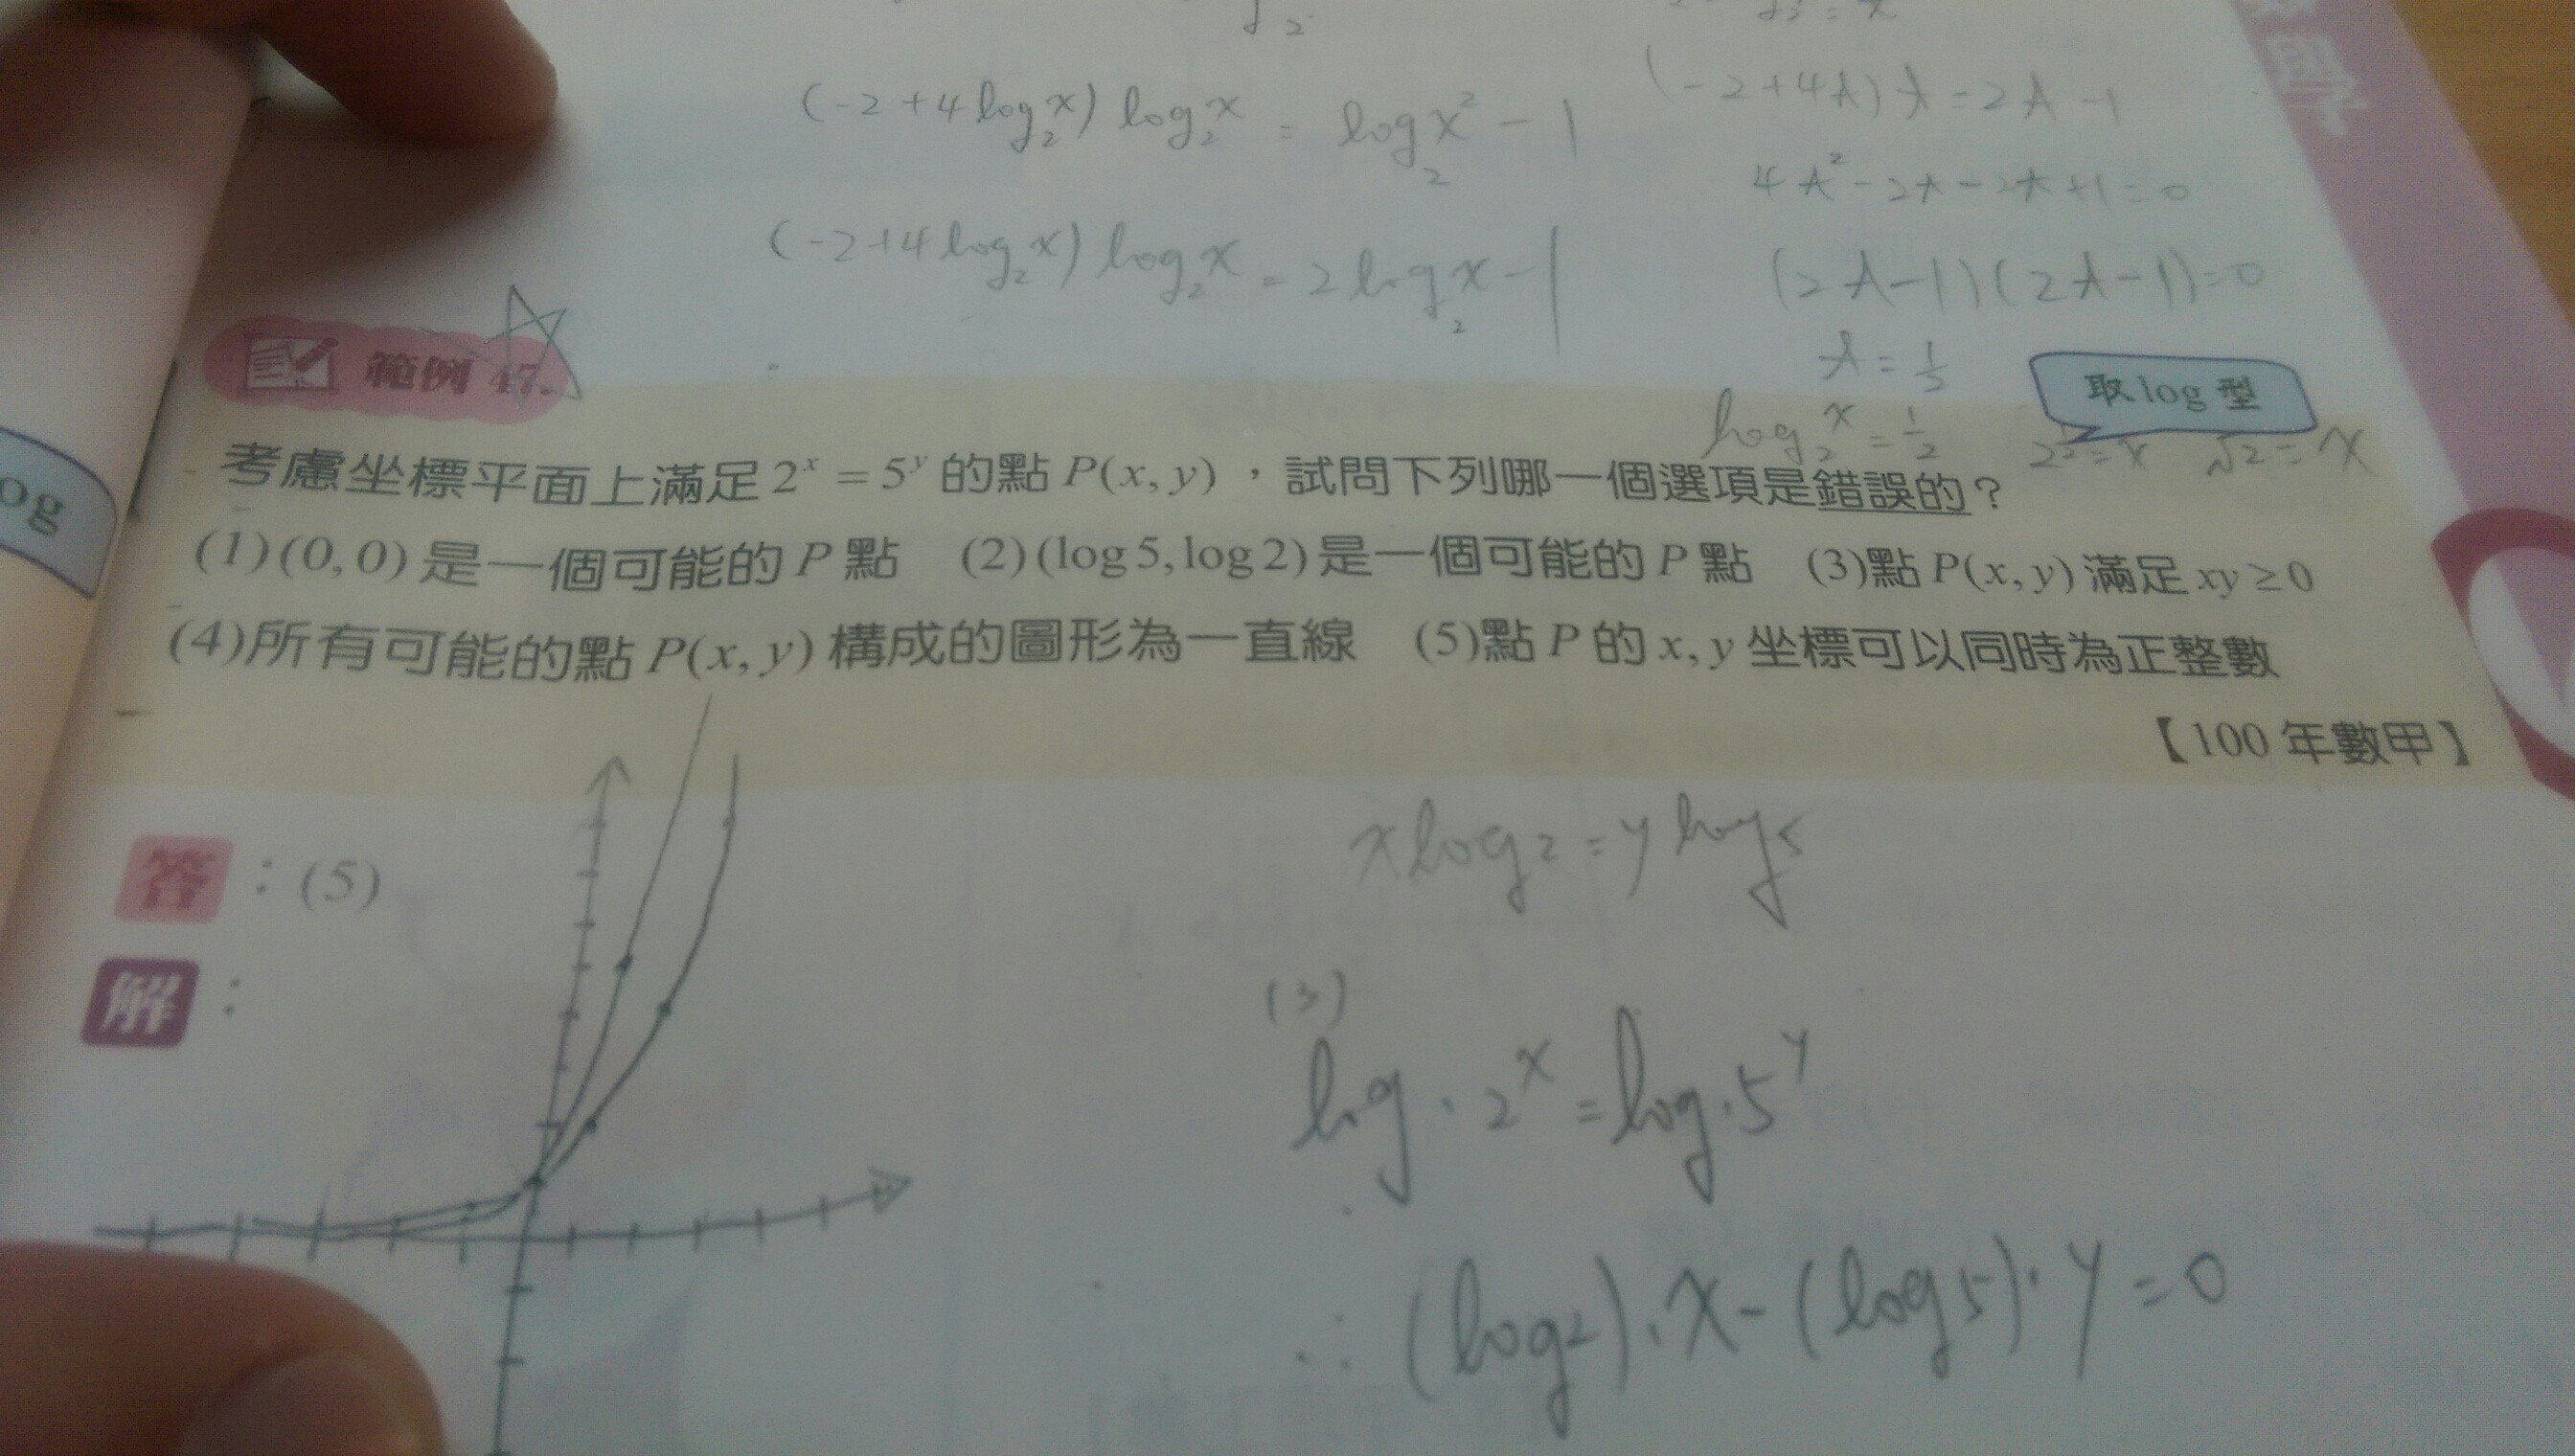 (-2+4log₂x)log₂x = log₂x² - 1
(-2+4A)A = 2A - 1
4A² - 2A - 2A + 1 = 0
(-2+4log₂x)log₂x = 2log₂x - 1
(2A-1)(2A-1) = 0
A = 1/2
範例 47.
取log型
log₂x = 1/2
√2 = x
og
考慮坐標平面上滿足 2ˣ = 5ʸ 的點 P(x, y),試問下列哪一個選項是錯誤的?
(1)(0, 0) 是一個可能的 P 點 (2)(log5, log2) 是一個可能的 P 點 (3)點 P(x, y) 滿足 xy ≥ 0
(4)所有可能的點 P(x, y) 構成的圖形為一直線 (5)點 P 的 x, y 坐標可以同時為正整數
【100 年數甲】
答:(5)
解:
xlog2 = ylog5
(3)
log·2ˣ = log·5ʸ
∴ (log2)·x - (log5)·y = 0